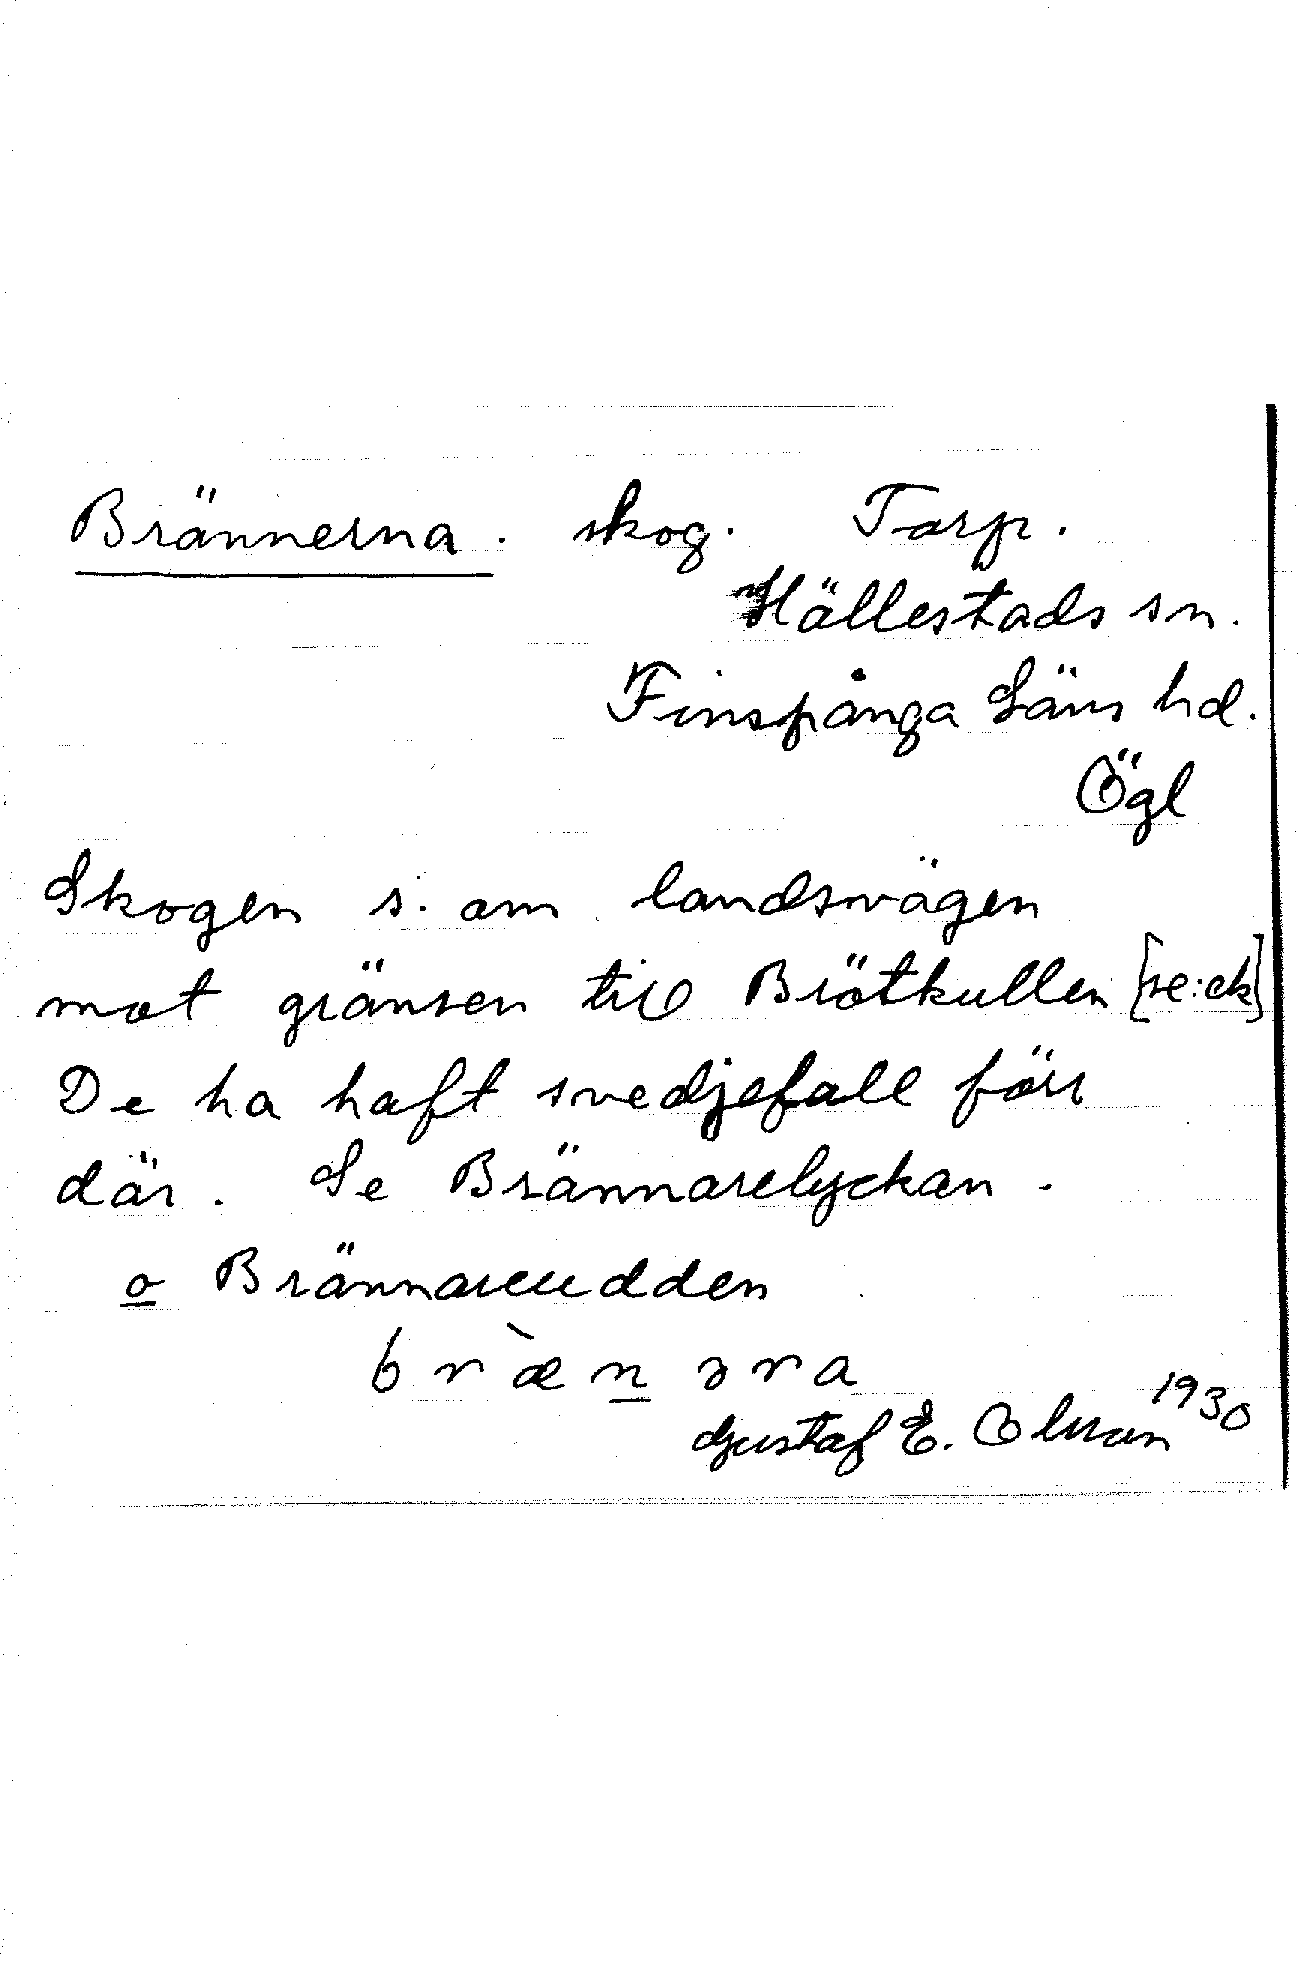 Brännerna. skog. Torp.
Hällestads sn.
Finspånga Läns hd.
Ögl
Skogen s. om landsvägen
mot gränsen till Brötkullen [se: ek]
De ha haft svedjefall förr
där. Se Brännarelyckan.
o Brännareudden
bræ̀n̲əra
Gustaf E. Olsson 1930